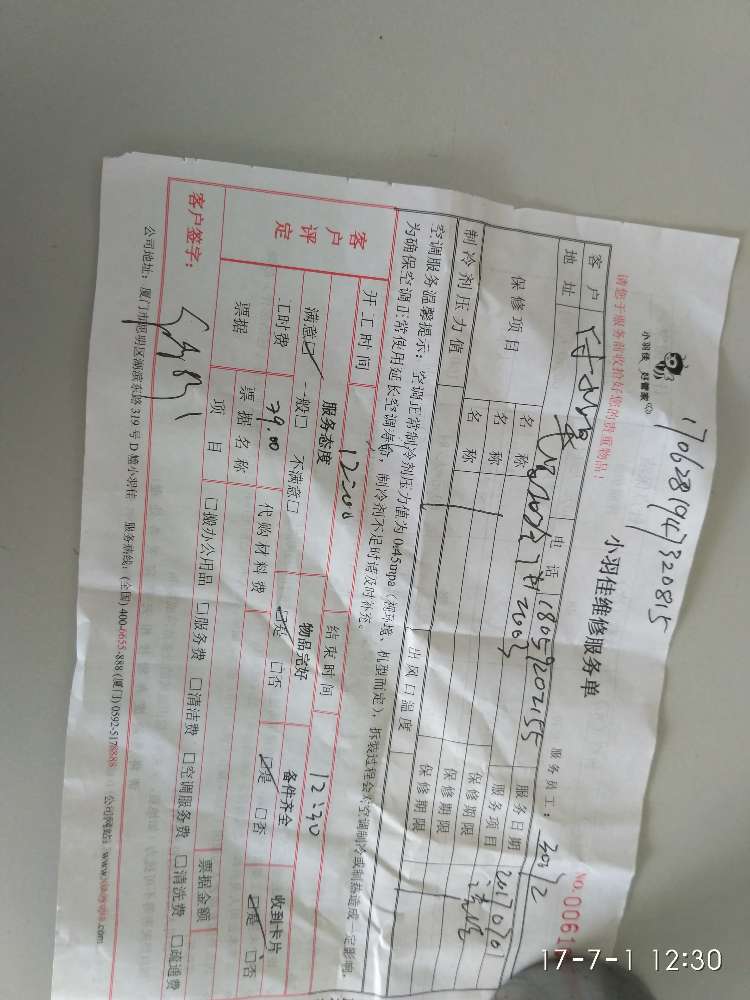 1706281947320815
小羽佳 好管家
小羽佳维修服务单
请您于服务前收拾好您的贵重物品！
服务员工：
NO. 0061
客户 电话 18059202155 服务日期 20170701
地址 服务项目 清洗
保修项目 名称 保修期限
名称 保修期限
名称 保修期限
制冷剂压力值 出风口温度
空调服务温馨提示：空调正常制冷剂压力值为0.45mpa（视环境、机型而定），拆装过程会对空调制冷或制热造成一定影响，
为确保空调正常使用延长空调寿命，制冷剂不足时请及时补充。
开工时间 12:00 结束时间 12:30
客户评定
服务态度 物品完好 备件齐全 收到卡片
满意☑ 一般□ 不满意□ ☑是 □否 ☑是 □否 ☑是 □否
工时费 39.00 代购材料费
票据 票据名称 票据金额
项目 □搬办公用品 □服务费 □清洁费 □空调服务费 □清洗费 □疏通费
客户签字：
公司地址：厦门市思明区湖滨东路319号D幢小羽佳 服务热线：(全国) 400-6655-888 (厦门) 0592-5178888 公司网站：www.xiaoyujia.com
17-7-1 12:30